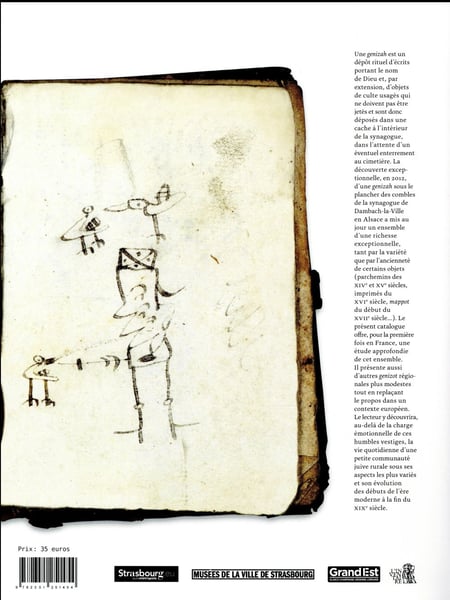 Une genizah est un
dépôt rituel d'écrits
portant le nom
de Dieu et, par
extension, d'objets
de culte usagés qui
ne doivent pas être
jetés et sont donc
déposés dans une
cache à l'intérieur
de la synagogue,
dans l'attente d'un
éventuel enterrement
au cimetière. La
découverte excep-
tionnelle, en 2012,
d'une genizah sous le
plancher des combles
de la synagogue de
Dambach-la-Ville
en Alsace a mis au
jour un ensemble
d'une richesse
exceptionnelle,
tant par la variété
que par l'ancienneté
de certains objets
(parchemins des
XIVe et XVe siècles,
imprimés du
XVIe siècle, mappot
du début du
XVIIe siècle…). Le
présent catalogue
offre, pour la première
fois en France, une
étude approfondie
de cet ensemble.
Il présente aussi
d'autres genizot régio-
nales plus modestes
tout en replaçant
le propos dans un
contexte européen.
Le lecteur y découvrira,
au-delà de la charge
émotionnelle de ces
humbles vestiges, la
vie quotidienne d'une
petite communauté
juive rurale sous ses
aspects les plus variés
et son évolution
des débuts de l'ère
moderne à la fin du
XIXe siècle.
Prix: 35 euros
Strasbourg.eu
MUSEES DE LA VILLE DE STRASBOURG
GrandEst